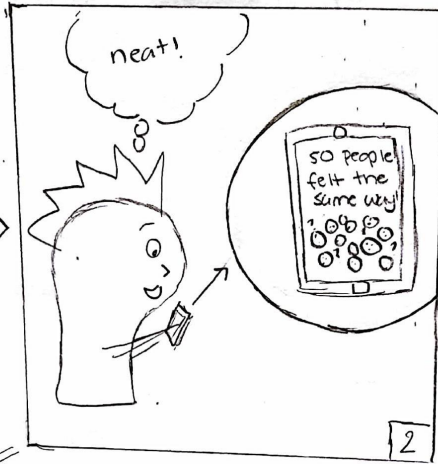 neat!
50 people
felt the
same way
2